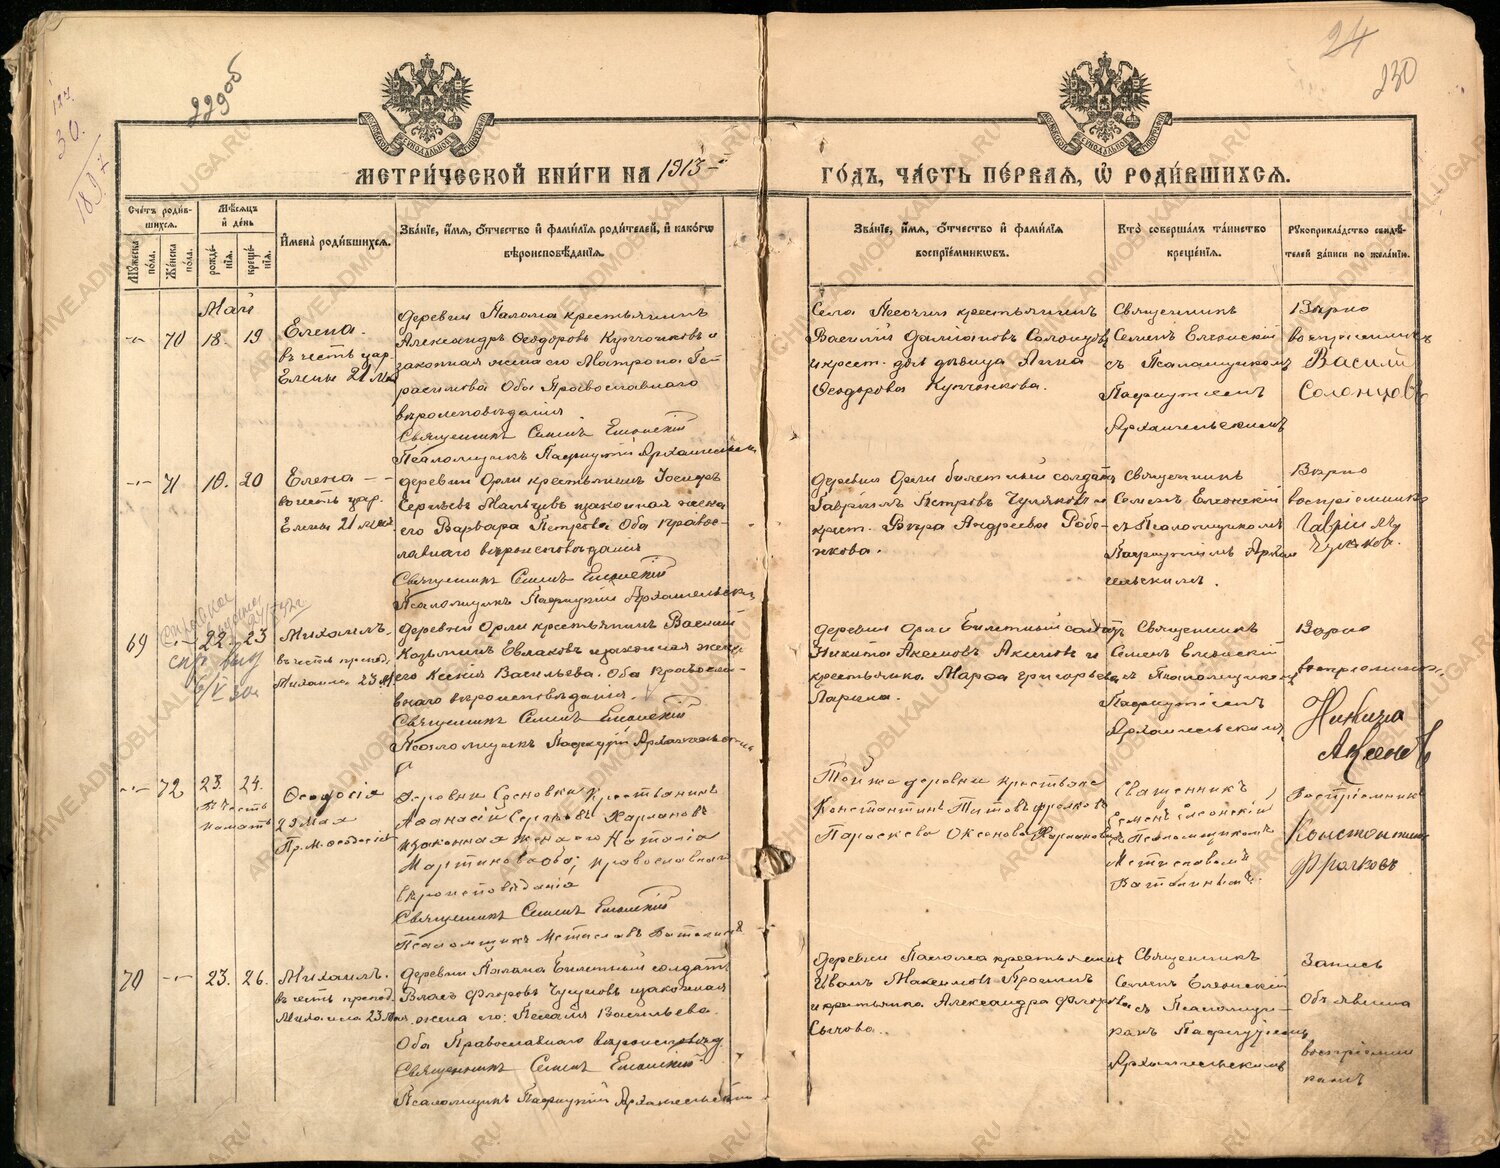 229об
24
230
30.
МЕТРИ́ЧЕСКОЙ КНИ́ГИ НА 1913-й
ГО́ДЪ, ЧА́СТЬ ПЕ́РВАЯ, Ѡ РОДИ́ВШИХСЯ.
Сче́тъ роди́в-
шихся.
Мѣ́сяцъ
и҆ де́нь
Му́жеска
по́ла.
Же́нска
по́ла.
рожде́-
нїя.
креще́-
нїя.
И҆мена̀ роди́вшихся.
Зва́нїе, и҆́мя, ѻ҆́тчество и҆ фами́лїя роди́телей, и҆ како́гѡ
вѣроисповѣ́данїя.
Зва́нїе, и҆́мя, ѻ҆́тчество и҆ фами́лїя
воспрїе́мниковъ.
Кто̀ соверша́лъ та́инство
креще́нїя.
Рꙋкоприкла́дство свидѣ́-
телей за́писи по жела́нїю.
Май
70 18. 19
Елена.
въ честь цар.
Елены 21 Мая
деревни Палома крестьянинъ
Александръ Ѳеодоровъ Купчонковъ и
законная жена его Матрона Ге-
расимова Оба Православнаго
вѣроисповѣданія
Священникъ Симеонъ Елеонскій
Псаломщикъ Пафнутій Архангельскій
Села Песочни крестьянинъ
Василій Даміановъ Солонцовъ
и крест. дѣв. дѣвица Анна
Ѳеодорова Купчонкова.
Священникъ
Семенъ Елеонскій
съ Псаломщикомъ
Пафнутіемъ
Архангельскимъ
Вѣрно
воспріемникъ
Василій
Солонцовъ
71 18. 20
Елена
въ честь цар.
Елены 21 Мая
деревни Орли крестьянинъ Іосифъ
Сергѣевъ Мальцевъ и законная жена
его Варвара Петрова Оба Право-
славнаго вѣроисповѣданія
Священникъ Симеонъ Елеонскій
Псаломщикъ Пафнутій Архангельскій
деревни Орли билетный солдатъ
Гавріилъ Петровъ Чуляковъ и
крест. Вѣра Андреева Рябе-
нкова.
Священникъ
Семенъ Елеонскій
съ Псаломщикомъ
Пафнутіемъ Архан
гельскимъ.
Вѣрно
воспріемникъ
Гавріилъ
Чуляковъ.
69 22 23
Михаилъ
въ честь препод.
Михаила 23 М
деревни Орли крестьянинъ Василій
Козьминъ Евлаковъ и законная жена
его Ксенія Васильева. Оба Правосла-
внаго вѣроисповѣданія.
Священникъ Симеонъ Елеонскій
Псаломщикъ Пафнутій Архангельскій
деревни Орли Билетный солдатъ
Никита Аксеновъ Акимовъ и
крестьянка Марѳа Григорьева
Ларина.
Священникъ
Семенъ Елеонскій
съ Псаломщикомъ
Пафнутіемъ
Архангельскимъ
Вѣрно
воспріемникъ
Никита
Аксеновъ
72 23. 24.
въ честь
память
Ѳеодосія
29 Мая
Пр. М. Ѳеодосіи
деревни Сосновки Крестьянинъ
Аѳанасій Сергѣевъ Харлановъ
и законная жена его Наталія
Мартинова оба православнаго
вѣроисповѣданія
Священникъ Симеонъ Елеонскій
Псаломщикъ Мстиславъ Виталинъ
Той же деревни крестьяне
Константинъ Титовъ Фролковъ
Параскева Оксенова Харланова
Священникъ
Семенъ Елеонскій
съ Псаломщикомъ
Мстиславомъ
Виталинымъ.
Воспріемникъ
Константинъ
Фролковъ
70 23. 26.
Михаилъ.
въ честь препод.
Михаила 23 Мая
деревни Палома Билетный солдатъ
Власъ Флоровъ Чугуновъ и законная
жена его: Пелагія Васильева.
Оба Православнаго вѣроисповѣд.
Священникъ Симеонъ Елеонскій
Псаломщикъ Пафнутій Архангельскій
деревни Палома крестьянинъ
Иванъ Максимовъ Прошинъ
и крестьянка Александра Флорова
Сычова.
Священникъ
Семенъ Елеонскій
съ Псаломщи-
комъ Пафнутіемъ
Архангельскимъ
Запись
Объявлена
воспріемни
камъ